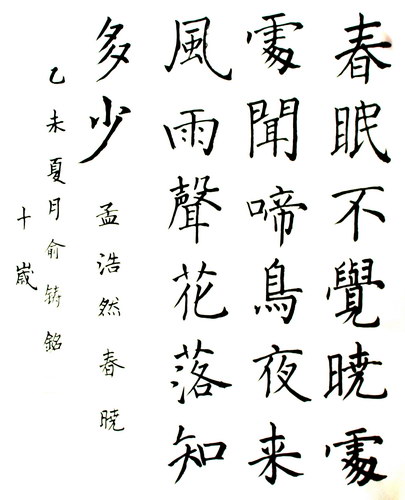 春眠不覺暁處
處聞啼鳥夜来
風雨聲花落知
多少 孟浩然 春暁
乙未夏月俞铸銘
十嵗